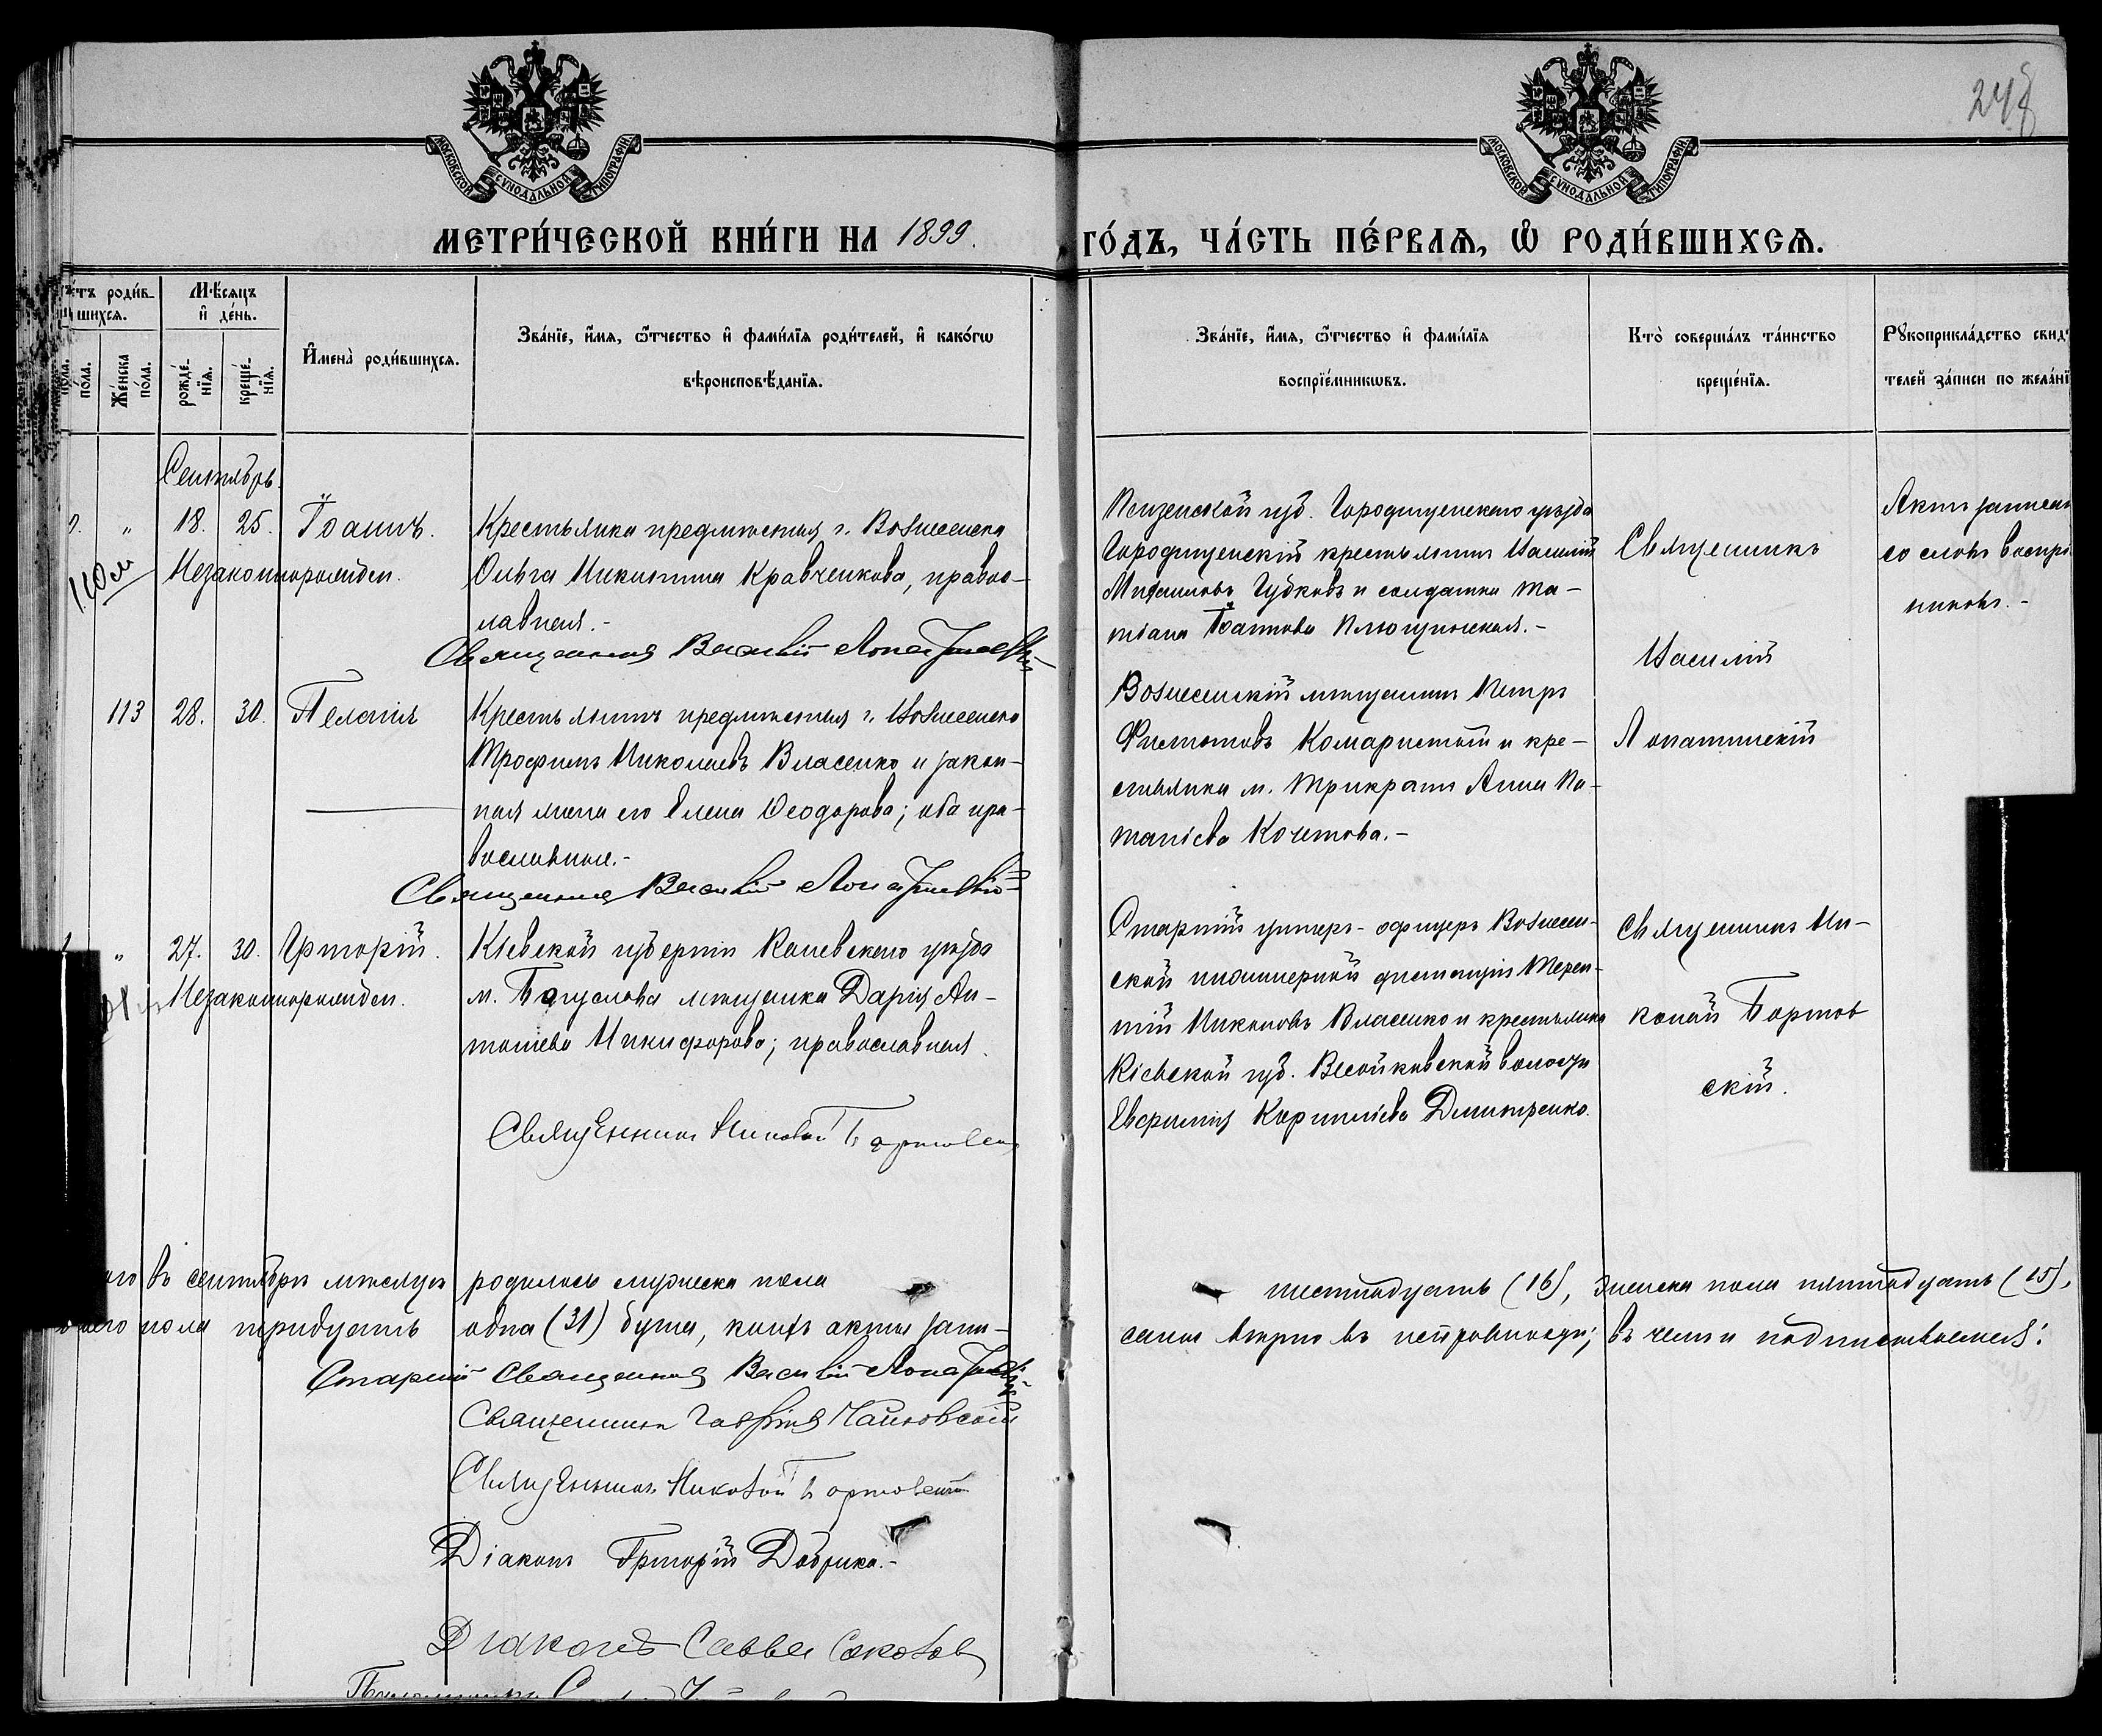 248
МОСКОВСКОЙ СѴНОДАЛЬНОЙ ТИПОГРАФІИ
МОСКОВСКОЙ СѴНОДАЛЬНОЙ ТИПОГРАФІИ
МЕТРИ́ЧЕСКОЙ КНИ́ГИ НА 1899.
ГО́ДЪ, ЧА́СТЬ ПЕ́РВАѦ, Ѡ҆ РОДИ́ВШИХСѦ.
роди́в-
шихсѧ.
Мѣ́сѧцъ
и҆ де́нь.
пола.
по́ла.
Же́нска
по́ла.
рожде́-
нїѧ.
креще́-
нїѧ.
И҆мена̀ роди́вшихсѧ.
Зва́нїе, и҆́мѧ, ѻ҆́тчество и҆ фами́лїѧ роди́телей, и҆ како́гѡ
вѣроисповѣ́данїѧ.
Зва́нїе, и҆́мѧ, ѻ҆́тчество и҆ фами́лїѧ
воспрїе́мникѡвъ.
Кто̀ соверша́лъ та́инство
креще́нїѧ.
Рꙋкоприкла́дство свид
телей за́писи по жела́нї
Сентябрь.
" 18. 25. Іоаннъ.
110 м
Незаконнорожден.
Крестьянка предмѣстья г. Вознесенска
Ольга Никитина Кравченкова, правос-
лавная.-
Священникъ Василій Лопатинскій
Пензенской губ. Городищенскаго уѣзда
Городищенскій крестьянинъ Василій
Губковъ и солдатка Та-
тіана
Священникъ
Василій
Лопатинскій
Актъ записан
со словъ воспрі
никовъ.-
113 28. 30. Пелагія
Крестьянинъ предмѣстья г. Вознесенска
Трофимъ Николаевъ Власенко и закон-
ная жена его Елена Ѳеодорова; оба пра-
вославные.-
Священникъ Василій Лопатинскій
Вознесенскій мѣщанинъ Петръ
Комаристый и кре-
стьянка м. Трикратъ Анна По-
тапіева Кочетова.-
" 27. 30. Григорій.
Незаконнорожден.
Кіевской губерніи Каневскаго уѣзда
м. Богуслава мѣщанка Дарія Ан-
тоніева Никифорова; православная.
Священникъ Николай Бортовскій
Старшій унтеръ-офицеръ Вознесен-
ской инженерной дистанціи Терен-
тій Никоновъ Власенко и крестьянка
Кіевской губ. волости
Евфимія Корниліева Дмитренко.
Священникъ Ни-
колай Бортов
скій.
въ сентябрѣ мѣсяцѣ родилось мужеска пола шестнадцать (16), женска пола пятнадцать (15),
пола тридцать одна (31) душа, коихъ акты запи-
саны вѣрно въ исправности; въ чемъ и подписываемся:
Старшій Священникъ Василій Лопатинскій
Священникъ Гавріилъ Чайковскій
Священникъ Николай Бортовскій
Діаконъ Григорій
Діаконъ Савва Соколов